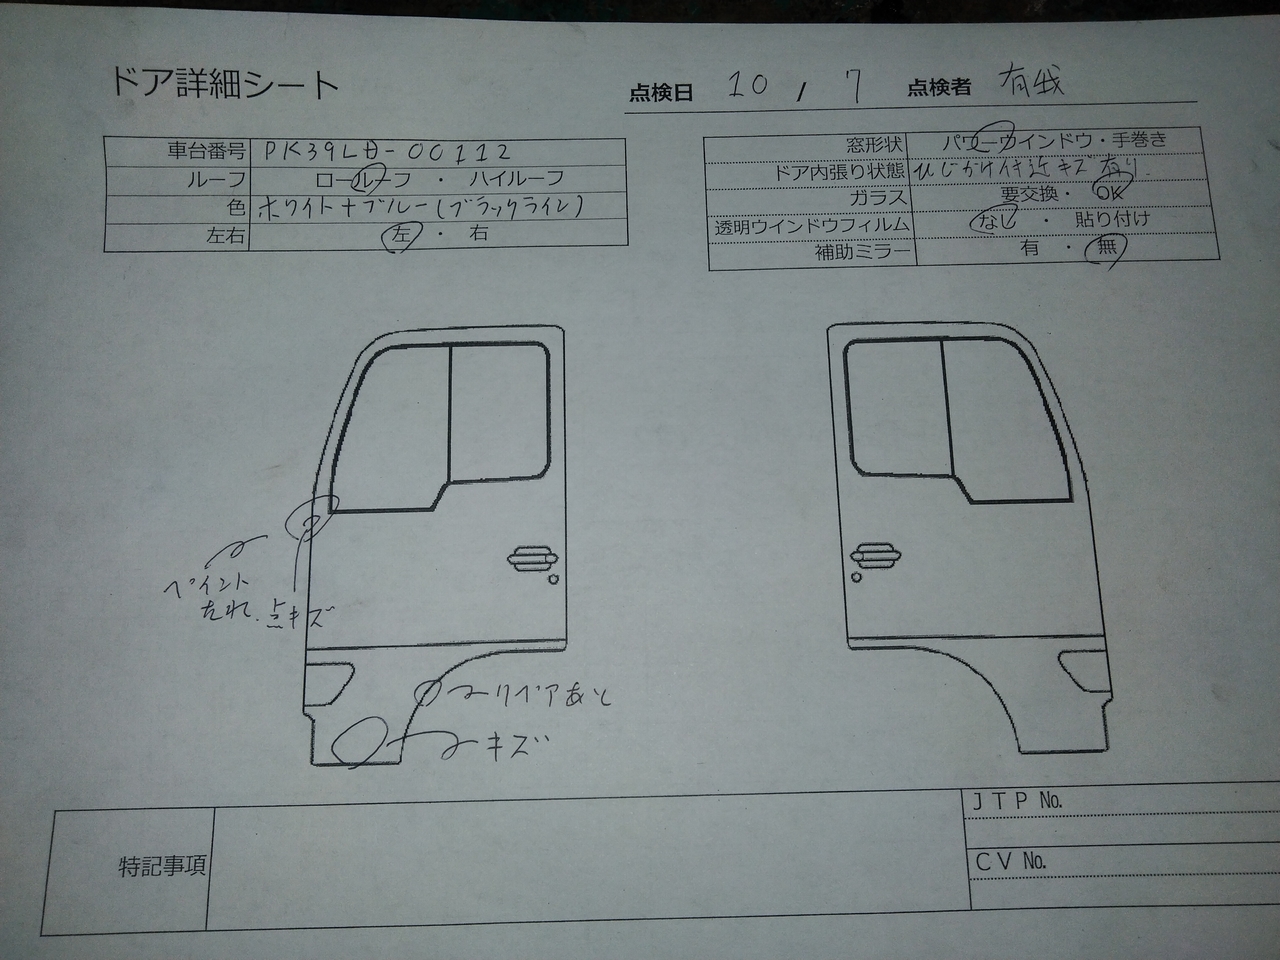 ドア詳細シート
点検日 10 / 7 点検者
車台番号 PK39LH-00112
ルーフ ロールーフ ・ ハイルーフ
色 ホワイト+ブルー(ブラックライン)
左右 左 ・ 右
窓形状 パワーウインドウ・手巻き
ドア内張り状態 ひじかけ付近キズ有り.
ガラス 要交換・ OK
透明ウインドウフィルム なし ・ 貼り付け
補助ミラー 有 ・ 無
ペイント
たれ. 点キズ
リペアあと
キズ
特記事項
JTP No.
CV No.